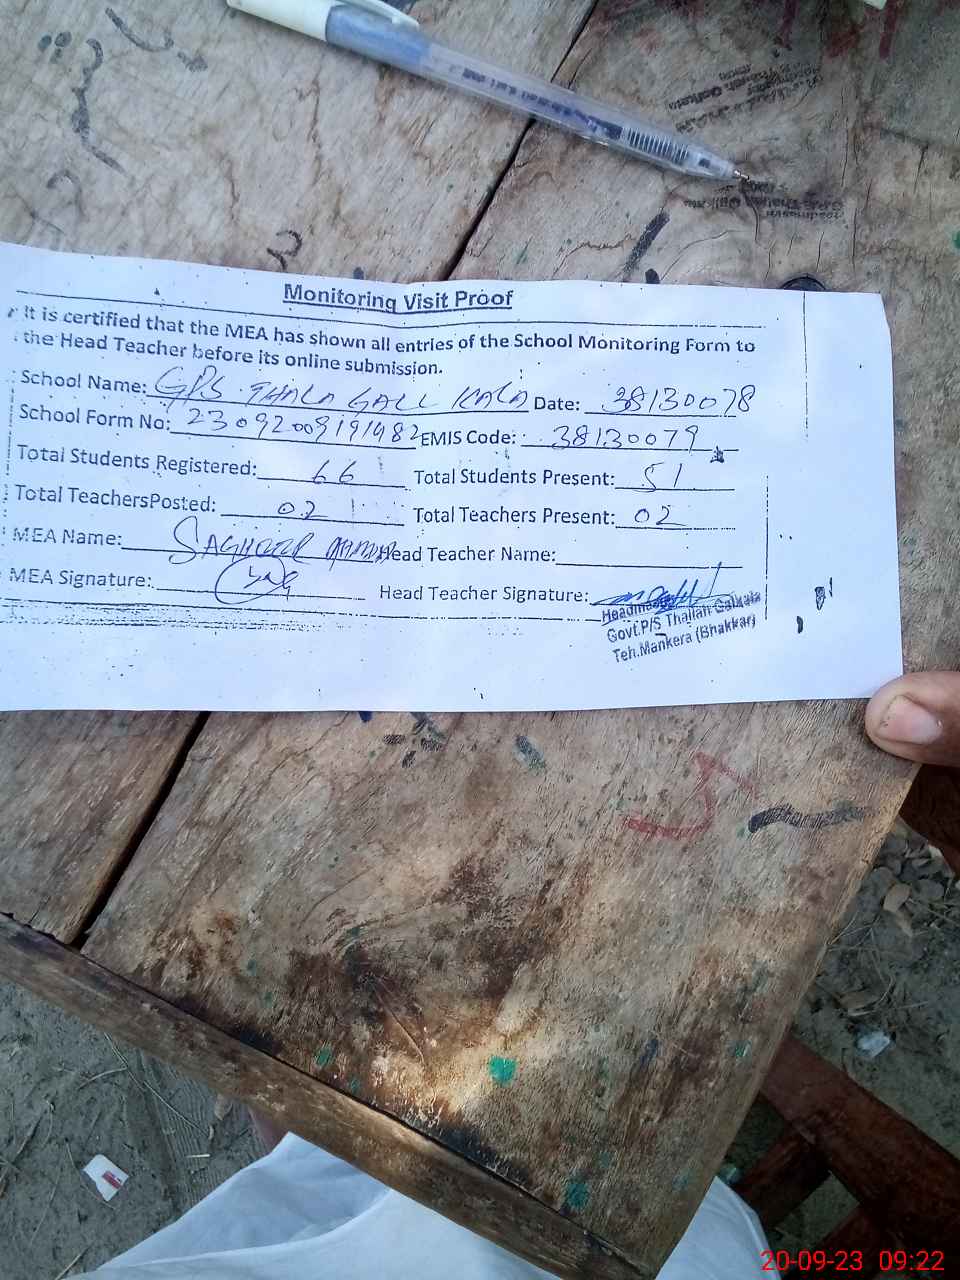 Monitoring Visit Proof
It is certified that the MEA has shown all entries of the School Monitoring Form to
the Head Teacher before its online submission.
School Name: GPS THALA GALL KALA Date: 38130078
School Form No: 230920091911982 EMIS Code: 38130079
Total Students Registered: 66 Total Students Present: 51
Total TeachersPosted: 02 Total Teachers Present: 02
MEA Name: SAGHEER AHMAD Head Teacher Name:
MEA Signature: Head Teacher Signature:
Headmaster
Govt.P/S Thallah Galkala
Teh.Mankera (Bhakkar)
20-09-23 09:22